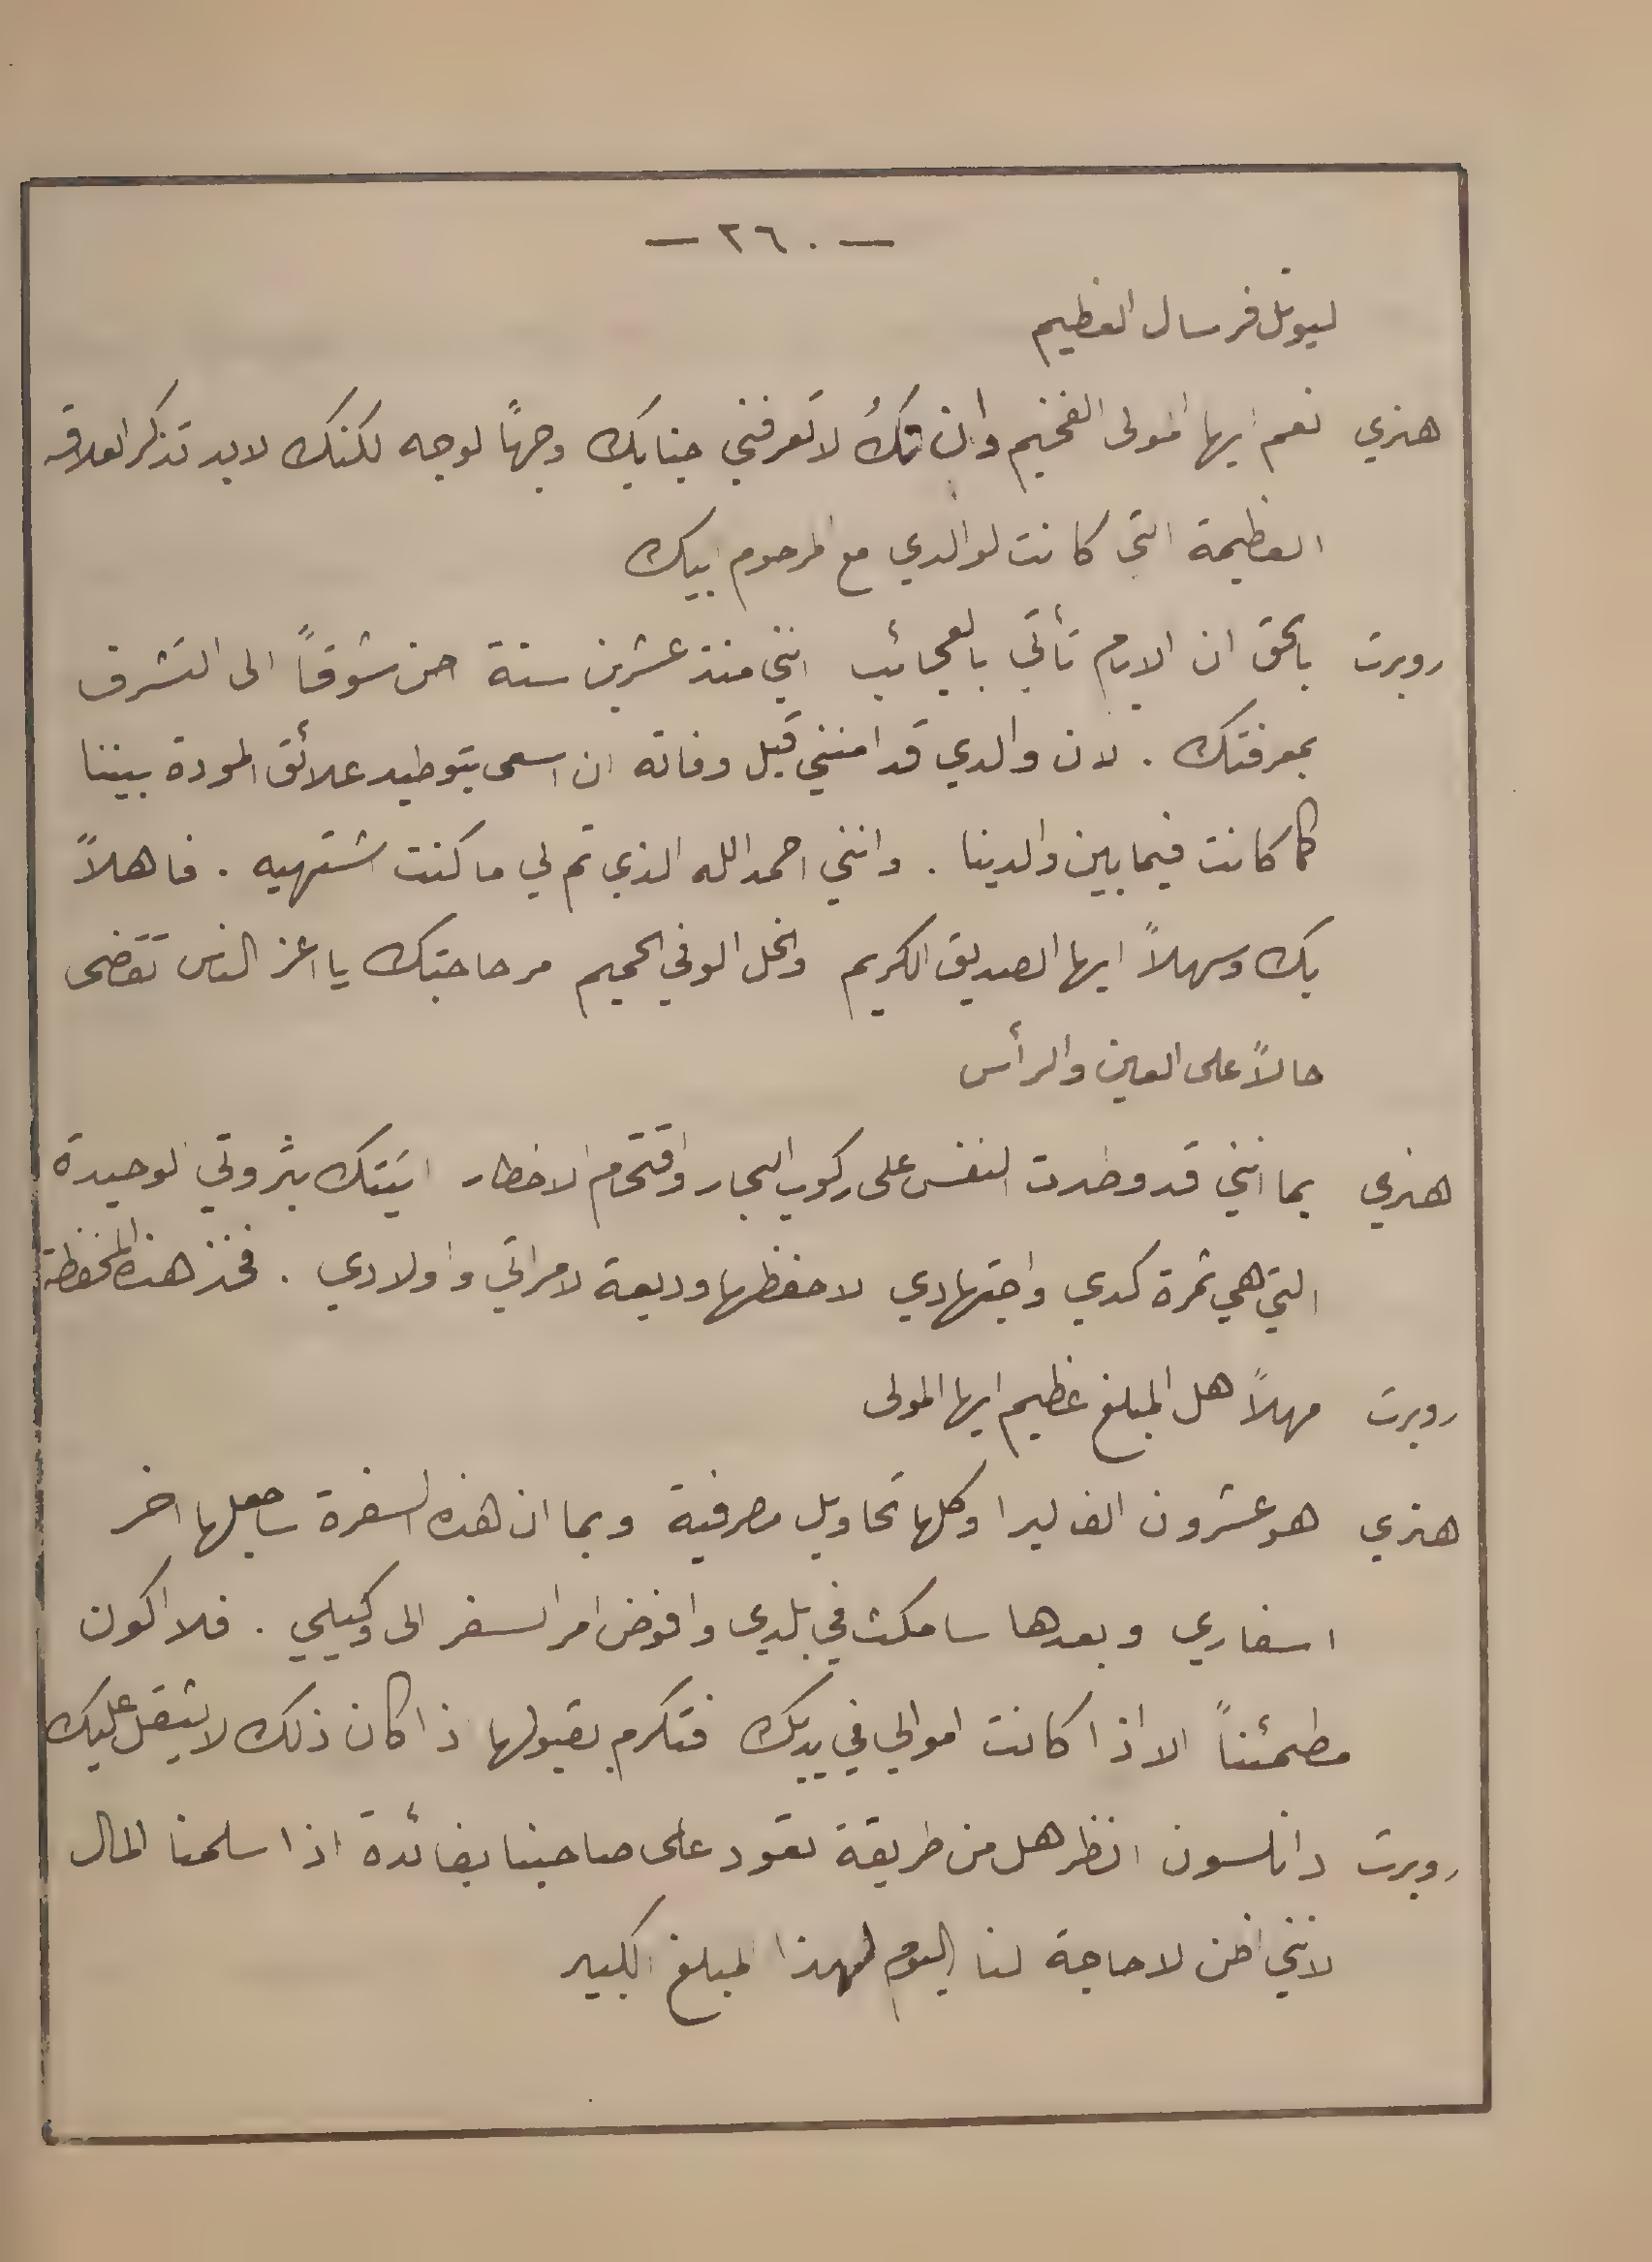 — ٢٦٠ —
ليونل فرسال العظيم
هنري نعم ايها المولى الفخيم وان تكُ لا تعرفني جنابك وجهاً لوجه لكنك لا بد تذكر العلاقه
العظيمة التي كانت لوالدي مع المرحوم ابيك
روبرت بالحق ان الايام تأتي بالعجائب انني منذ عشرين سنة احن شوقاً الى التشرف
بمعرفتك . لان والدي قد امنني قبل وفاته ان اسعى بتوطيد علائق المودة بيننا
كما كانت فيما بين والدينا . وانني احمد الله الذي تم لي ما كنت اشتهيه . فاهلاً
بك وسهلاً ايها الصديق الكريم والخل الوفي الحميم مر حاجتك يا اعز الناس تقضى
حالاً على العين والرأس
هنري بما انني قد وطدت النفس على ركوب البحار واقتحام الاخطار اتيتك بثروتي الوحيدة
التي هي ثمرة كدي واجتهادي لاحفظها وديعة لامراتي واولادي . فخذ هذه المحفظة
روبرت مهلاً هل المبلغ عظيم ايها المولى
هنري هو عشرون الف ليرا وكلها تحاويل مصرفية وبما ان هذه السفرة ساجعلها اخر
اسفاري وبعدها سامكث في بلدي وافوض امر السفر الى وكيلي . فلا اكون
مطمئناً الا اذا كانت اموالي في يديك فتكرم بقبولها اذا كان ذلك لا يثقل عليك
روبرت دانلسون انظر هل من طريقة تعود على صاحبنا بفائدة اذا سلمنا المال
لانني اظن لا حاجة لنا اليوم لهذا المبلغ الكبير